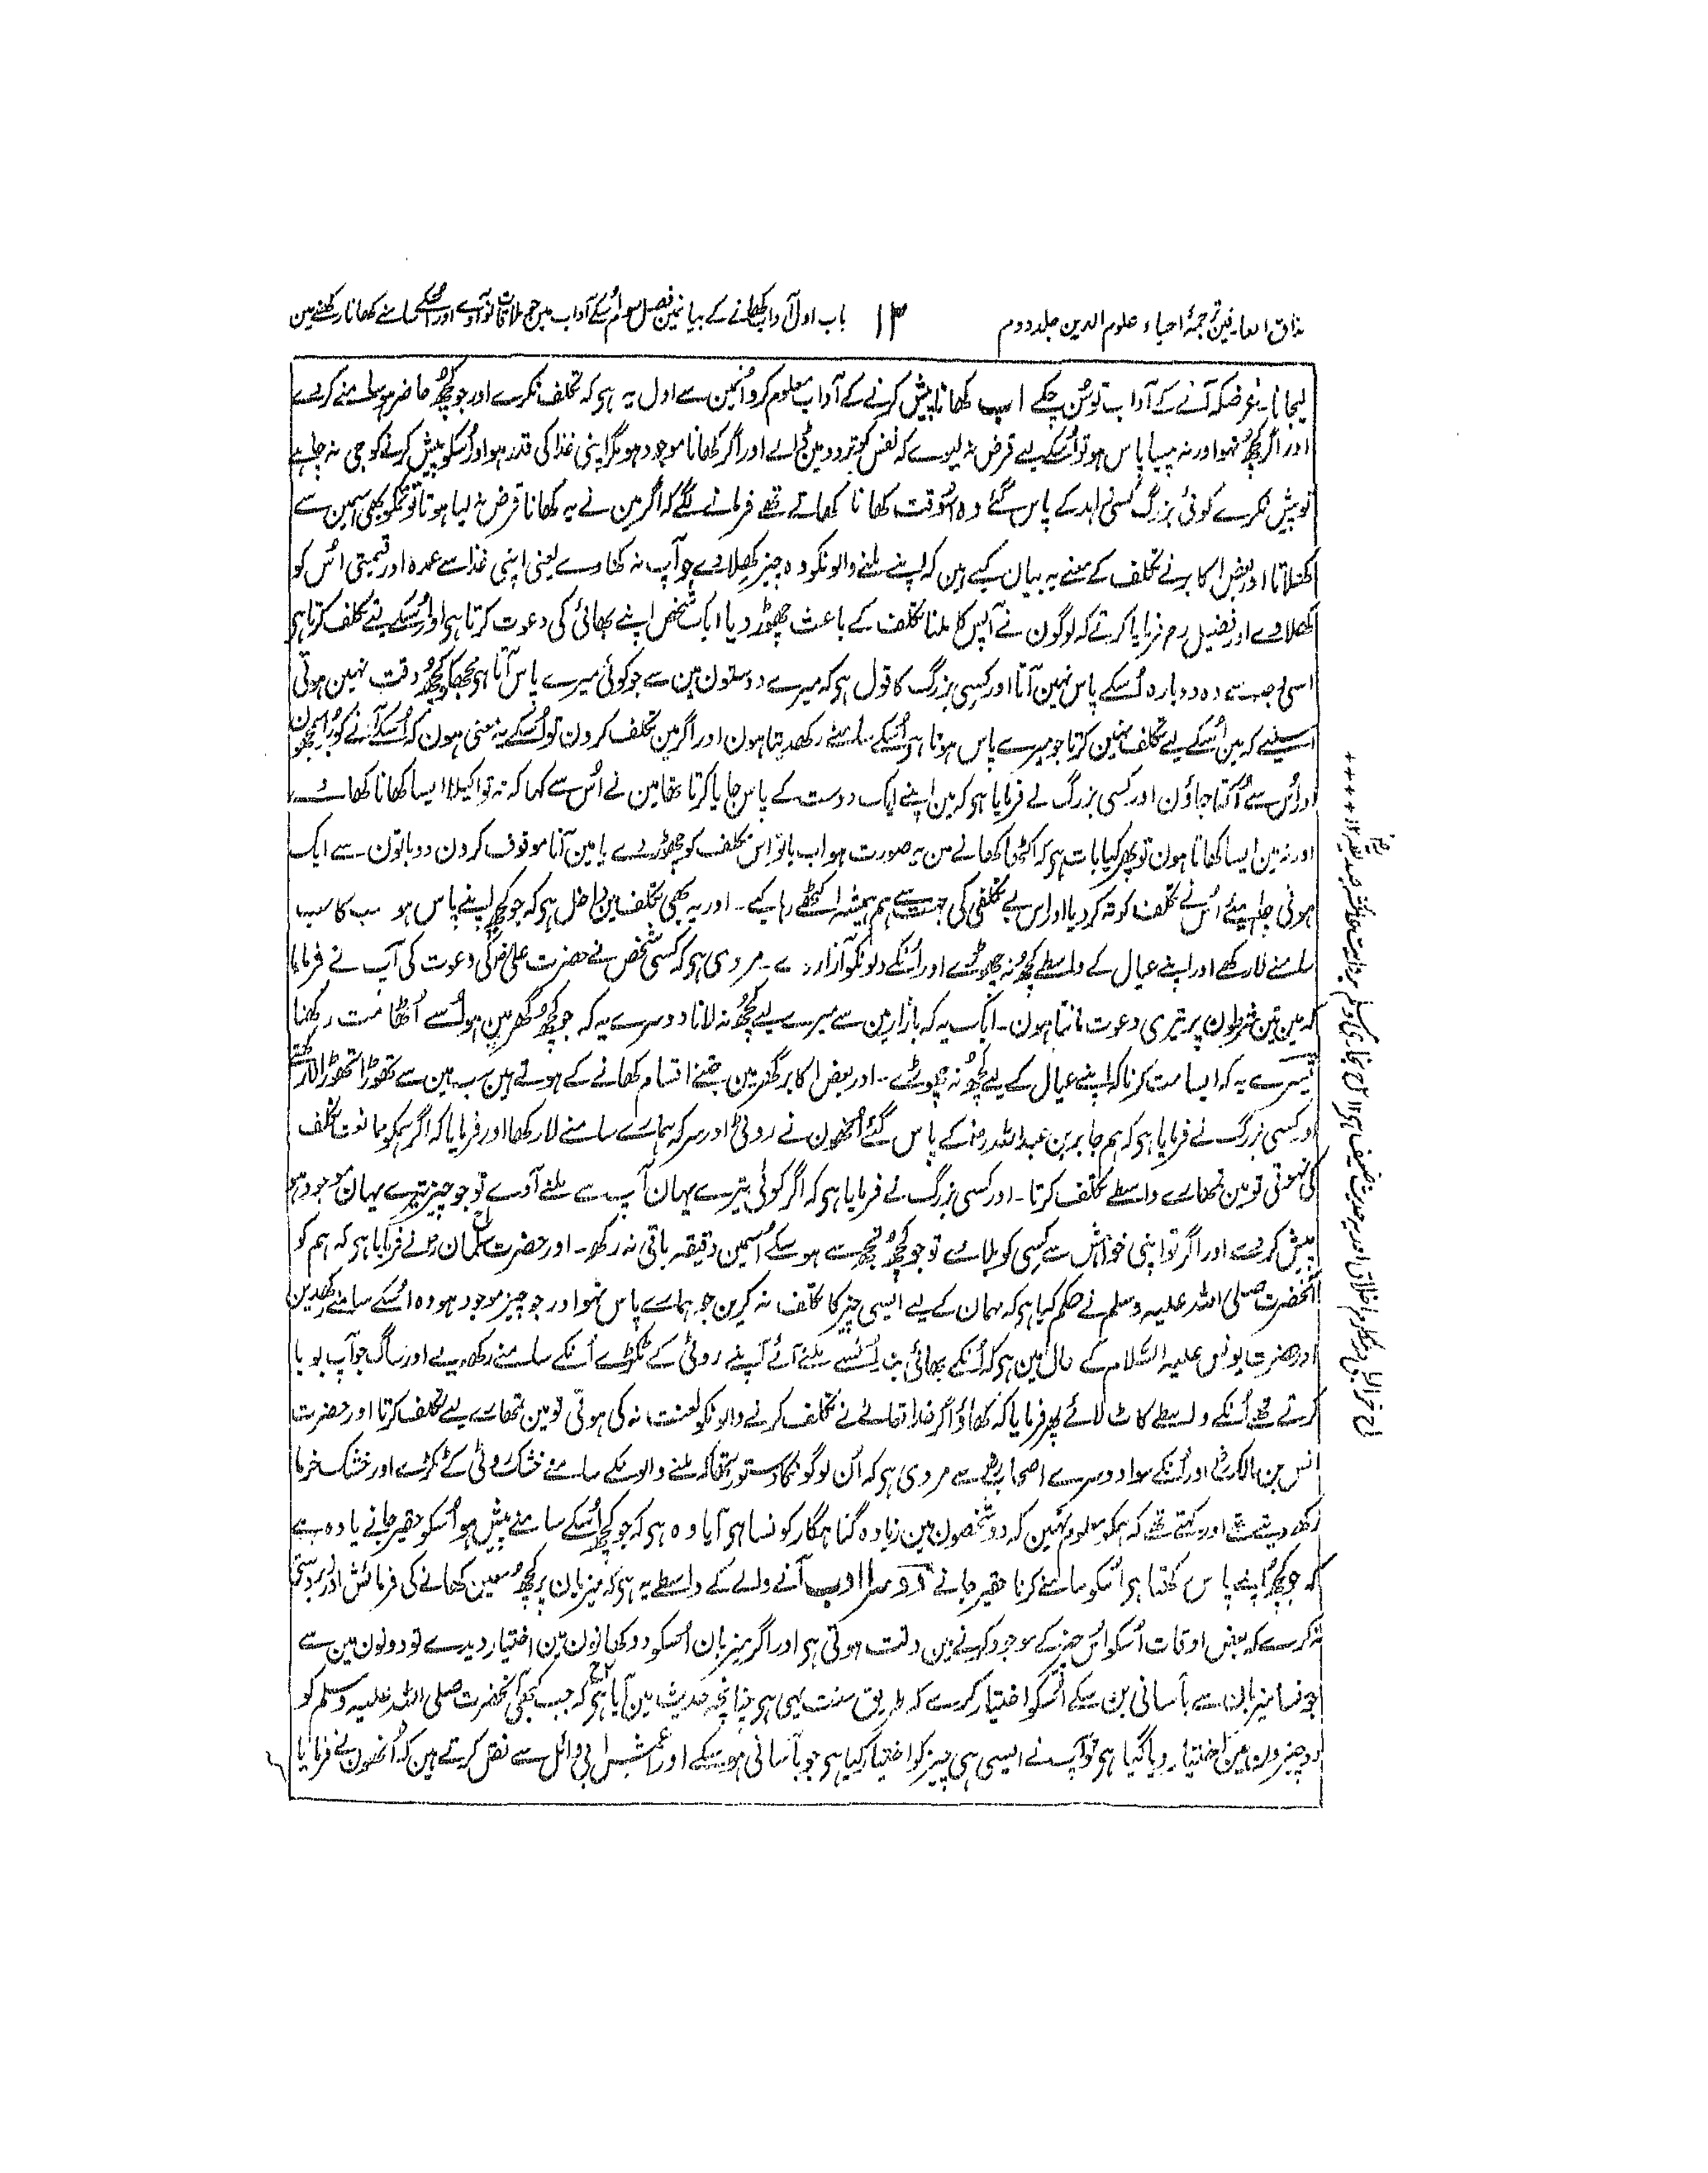 مذاق العارفین ترجمۂ احیاء علوم الدین جلد دوم ۱۳ باب اول آداب کھانے کے بیان مین فصل سوم اُسکے آداب مین جو ملاقات کو آوے اور اُسکے سامنے کھانا رکھنے مین
لیجانا۔ غرضکہ آنے کے آداب تو سُن چکے اب کھانا پیش کرنے کے آداب معلوم کرو اُنمین سے اول یہ ہی کہ تکلف نکرے اور جو کچھ حاضر ہو سامنے کردے
اور اگر کچھ نہو اور نہ پیسا پاس ہو تو اُسکے لیے قرض نہ لیوے کہ نفس کو تردد مین ڈالے اور اگر کھانا موجود ہو مگر اپنی غذا کی قدر ہو اور اُسکو پیش کرنے کو جی نہ چاہے
تو پیش نکرے کوئی بزرگ کسی زاہد کے پاس گئے وہ اُسوقت کھانا کھاتے تھے فرمانے لگے کہ اگر مین نے یہ کھانا قرض نہ لیا ہوتا تو تمکو بھی اسمین سے
کھلاتا اور بعض اکابر نے تکلف کے معنے یہ بیان کیے ہین کہ اپنے ملنے والونکو وہ چیز کھلاوے جو آپ نہ کھاوے یعنی اپنی غذا سے عمدہ اور قیمتی اُس کو
کھلاوے اور فضیل رح فرمایا کرتے کہ لوگون نے آپس کا ملنا تکلف کے باعث چھوڑ دیا ایک شخص اپنے بھائی کی دعوت کرتا ہی اور اُسکے لیے تکلف کرتا ہی
اسی وجہ سے وہ دوبارہ اُسکے پاس نہین آتا اور کسی بزرگ کا قول ہی کہ میرے دوستون مین سے جو کوئی میرے پاس آتا ہی مجھکو کچھ دقت نہین ہوتی
اسلیے کہ مین اُسکے لیے تکلف نہین کرتا جو میرے پاس ہوتا ہی اُسکے سامنے رکھدیتا ہون اور اگر مین تکلف کرون تو اُسکے یہ معنی ہون کہ اُسکے آنے کو بُرا سمجھون
اور اُس سے اُکتا جاؤن اور کسی بزرگ نے فرمایا ہی کہ مین اپنے ایک دوست کے پاس جایا کرتا تھا مین نے اُس سے کہا کہ نہ تو اکیلا ایسا کھانا کھائے
اور نہ مین ایسا کھاتا ہون تو پھر کیا بات ہی کہ اکٹھا کھانے مین یہ صورت ہو اب یا تو اِس تکلف کو چھوڑ دے یا مین آنا موقوف کردون دو باتون سے ایک
ہونی چاہیئے اُس نے تکلف کو تہ کردیا اور اس بے تکلفی کی جہت سے ہم ہمیشہ اکٹھے رہا کیے۔ اور یہ بھی تکلف مین داخل ہی کہ جو کچھ اپنے پاس ہو سب کا سب
سامنے لا رکھے اور اپنے عیال کے واسطے کچھ نہ چھوڑے اور اُنکے دلونکو آزار دے۔ مروی ہی کہ کسی شخص نے حضرت علی رض کی دعوت کی آپ نے فرمایا
کہ مین تین شرطون پر تیری دعوت مانتا ہون۔ ایک یہ کہ بازار مین سے میرے لیے کچھ نہ لانا دوسرے یہ کہ جو کچھ گھر مین ہو اُسے اُٹھا مت رکھنا
تیسرے یہ کہ ایسا مت کرنا کہ اپنے عیال کے لیے کچھ نہ چھوڑے۔ اور بعض اکابر گھر مین جتنے اقسام کھانے کے ہوتے ہین سب مین سے تھوڑا تھوڑا لا رکھتے
اور کسی بزرگ نے فرمایا ہی کہ ہم جابر بن عبداللہ رض کے پاس گئے اُنھون نے روٹی اور سرکہ ہمارے سامنے لا رکھا اور فرمایا کہ اگر ہمکو ممانعت تکلف
کی نہوتی تو مین تمھارے واسطے تکلف کرتا۔ اور کسی بزرگ نے فرمایا ہی کہ اگر کوئی تیرے یہان آپ سے ملنے آوے تو جو چیز تیرے یہان موجود ہو
پیش کردے اور اگر تو اپنی خواہش سے کسی کو بلائے تو جو کچھ تجھ سے ہو سکے اُسمین دقیقہ باقی نہ رکھ۔ اور حضرت سلمان رض نے فرمایا ہی کہ ہم کو
آنحضرت صلی اللہ علیہ وسلم نے حکم کیا ہی کہ مہمان کے لیے ایسی چیز کا تکلف نہ کرین جو ہمارے پاس نہو اور جو چیز موجود ہو وہ اُسکے سامنے رکھدین
اور حضرت یونس علیہ السلام کے حال مین ہی کہ اُنکے بھائی بند اُنسے ملنے آئے آپنے روٹی کے ٹکڑے اُنکے سامنے رکھدیے اور ساگ جو آپ بویا
کرتے تھے اُنکے واسطے کاٹ لائے پھر فرمایا کہ کھاؤ اگر خدا تعالےٰ نے تکلف کرنے والونکو لعنت نہ کی ہوتی تو مین تمھارے لیے تکلف کرتا اور حضرت
انس بن مالک رض اور اُنکے سوا دوسرے اصحاب رض سے مروی ہی کہ اُن لوگونکا دستور تھا کہ ملنے والونکے سامنے خشک روٹی کے ٹکڑے اور خشک خرما
رکھدیتے تھے اور کہتے تھے کہ ہمکو معلوم نہین کہ دو شخصون مین زیادہ گناہگار کونسا ہی آیا وہ ہی کہ جو کچھ اُسکے سامنے پیش ہو اُسکو حقیر جانے یا وہ ہے
کہ جو کچھ اپنے پاس رکھتا ہی اُسکو سامنے کرنا حقیر جانے دوسرا ادب آنے والے کے واسطے یہ ہی کہ میزبان پر کچھ معین کھانے کی فرمائش اور زبردستی
نہ کرے کہ بعض اوقات اُسکو اُس چیز کے موجود کرنے مین دقت ہوتی ہی اور اگر میزبان اُسکو دو کھانون مین اختیار دیدے تو دونون مین سے
جونسا میزبان سے بآسانی بن سکے اُسکو اختیار کرے کہ طریق سنت یہی ہی چنانچہ حدیث مین آیا ہی کہ جب کبھی آنحضرت صلی اللہ علیہ وسلم کو
دو چیزون مین اختیار دیا گیا ہی تو آپ نے ایسی ہی چیز کو اختیار کیا ہی جو بآسانی ہوسکے اور اعمش ابی وائل سے نقل کرتے ہین کہ اُنھون نے فرمایا